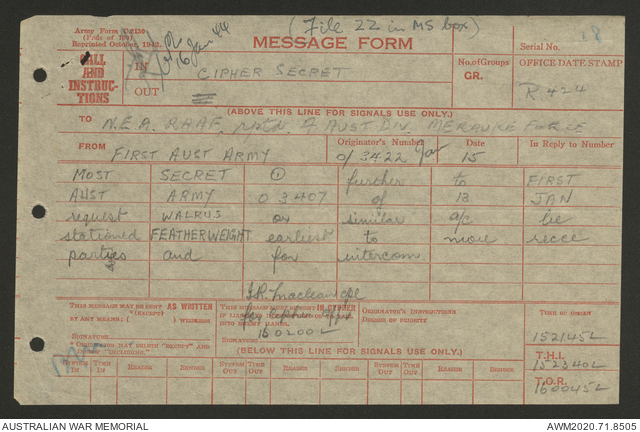 (File 22 in MS box)
Army Form C.2136
(Pads of 100)
Reprinted October, 1942.
16 Jan 44
MESSAGE FORM
Serial No.
18
CALL AND INSTRUCTIONS
IN
OUT
CIPHER SECRET
No. of Groups
GR.
OFFICE DATE STAMP
R 424
(ABOVE THIS LINE FOR SIGNALS USE ONLY.)
TO N.E.A. RAAF, rptd 4 AUST DIV. MERAUKE FORCE
FROM FIRST AUST ARMY
Originator's Number
O/3422
Date
15
In Reply to Number
MOST SECRET ① further to FIRST
AUST ARMY O 3407 of 13 JAN
request WALRUS or similar a/c be
stationed FEATHERWEIGHT earliest to move recce
parties and for intercom.
THIS MESSAGE MAY BE SENT AS WRITTEN
(EXCEPT)
BY ANY MEANS WIRELESS
SIGNATURE
ORIGINATOR MAY DELETE "EXCEPT" AND "INCLUDING."
THIS MESSAGE MUST BE SENT IN CIPHER
INTO ENEMY HANDS.
160200L
SIGNATURE
ORIGINATOR'S INSTRUCTIONS
DEGREE OF PRIORITY
TIME OF ORIGIN
152145L
(BELOW THIS LINE FOR SIGNALS USE ONLY.)
T.H.I.
152340L
T.O.R.
160045L
SYSTEM IN
TIME IN
READER
SENDER
SYSTEM OUT
TIME OUT
READER
SENDER
SYSTEM OUT
TIME OUT
READER
SENDER
AUSTRALIAN WAR MEMORIAL
AWM2020.71.8505